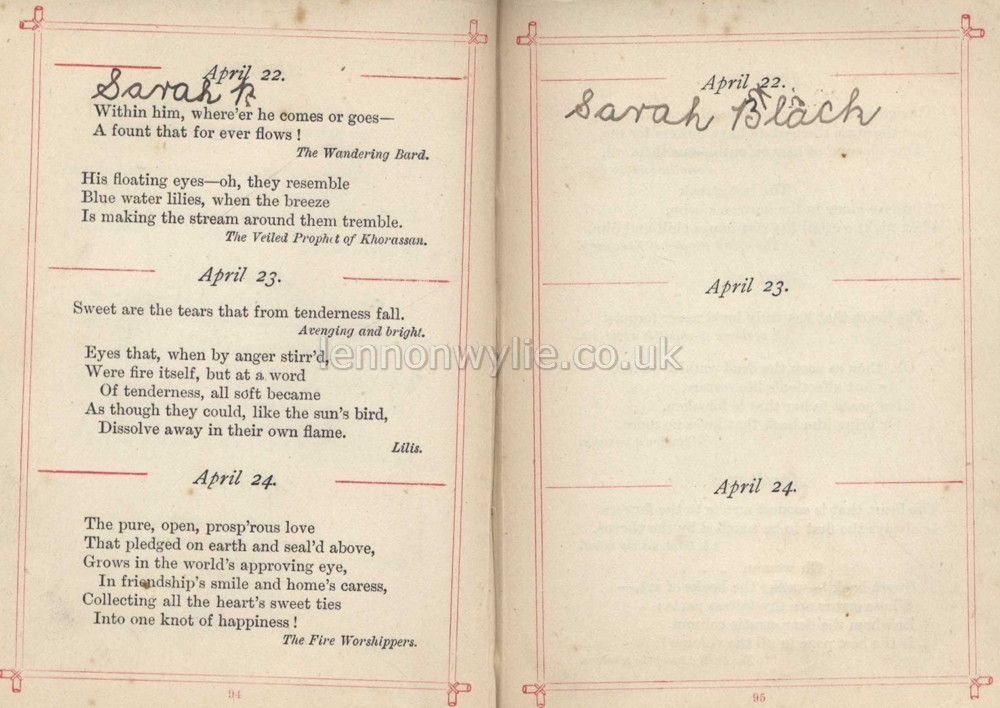 April 22.
Sarah B
Within him, where'er he comes or goes—
A fount that for ever flows!
The Wandering Bard.
His floating eyes—oh, they resemble
Blue water lilies, when the breeze
Is making the stream around them tremble.
The Veiled Prophet of Khorassan.
April 23.
Sweet are the tears that from tenderness fall.
Avenging and bright.
Eyes that, when by anger stirr'd,
Were fire itself, but at a word
Of tenderness, all soft became
As though they could, like the sun's bird,
Dissolve away in their own flame.
Lilis.
April 24.
The pure, open, prosp'rous love
That pledged on earth and seal'd above,
Grows in the world's approving eye,
In friendship's smile and home's caress,
Collecting all the heart's sweet ties
Into one knot of happiness!
The Fire Worshippers.
94
April 22.
Sarah Black
April 23.
April 24.
95
lennonwylie.co.uk